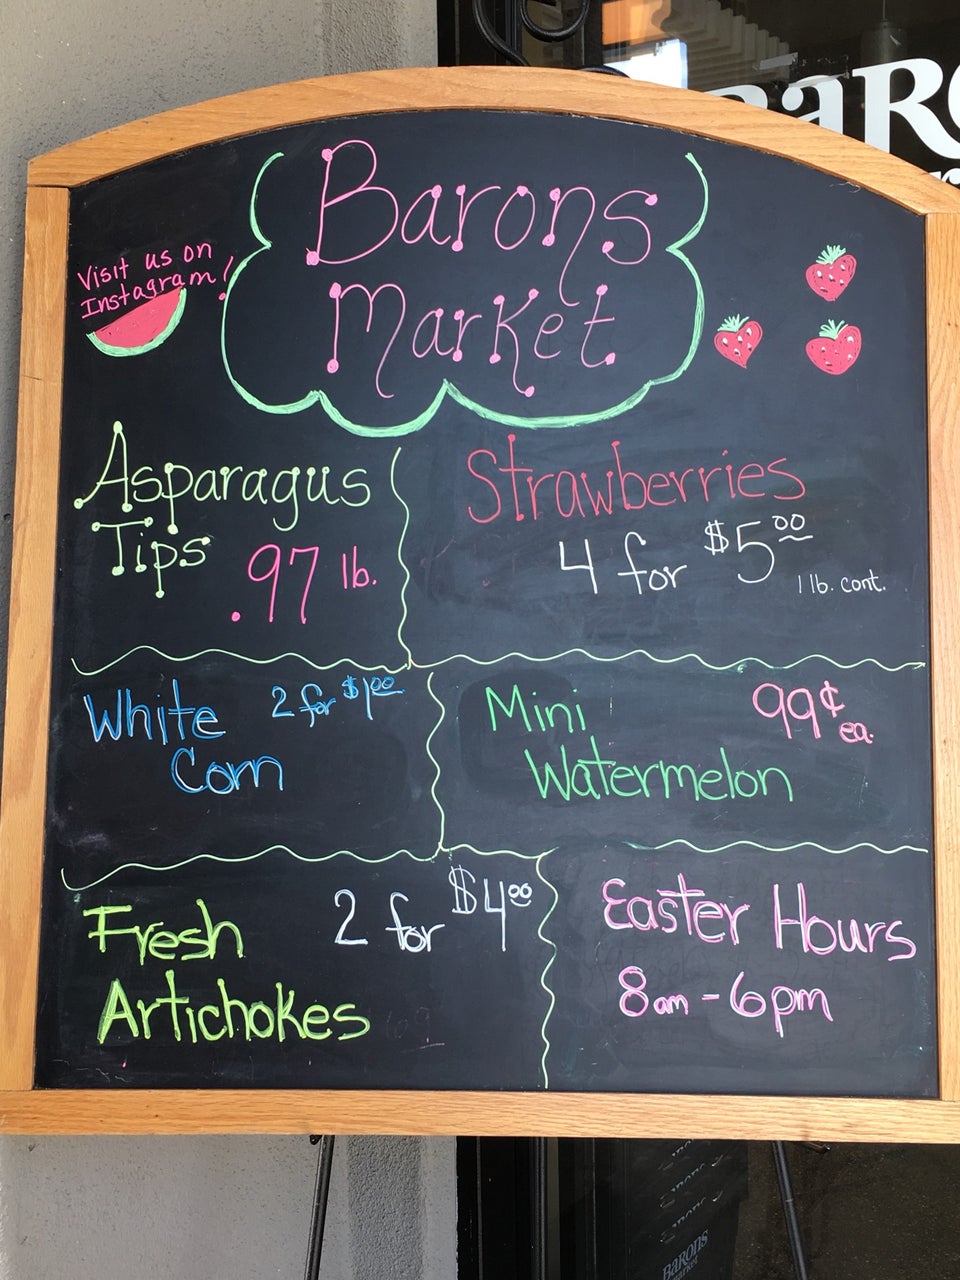 BARO
Barons
Market
Visit us on
Instagram!
Asparagus
Tips
.97 lb.
Strawberries
4 for $5.00
1 lb. cont.
White
Corn
2 for $1.00
Mini
Watermelon
99¢
ea.
Fresh
Artichokes
2 for $4.00
Easter Hours
8am - 6pm
BARONS
market